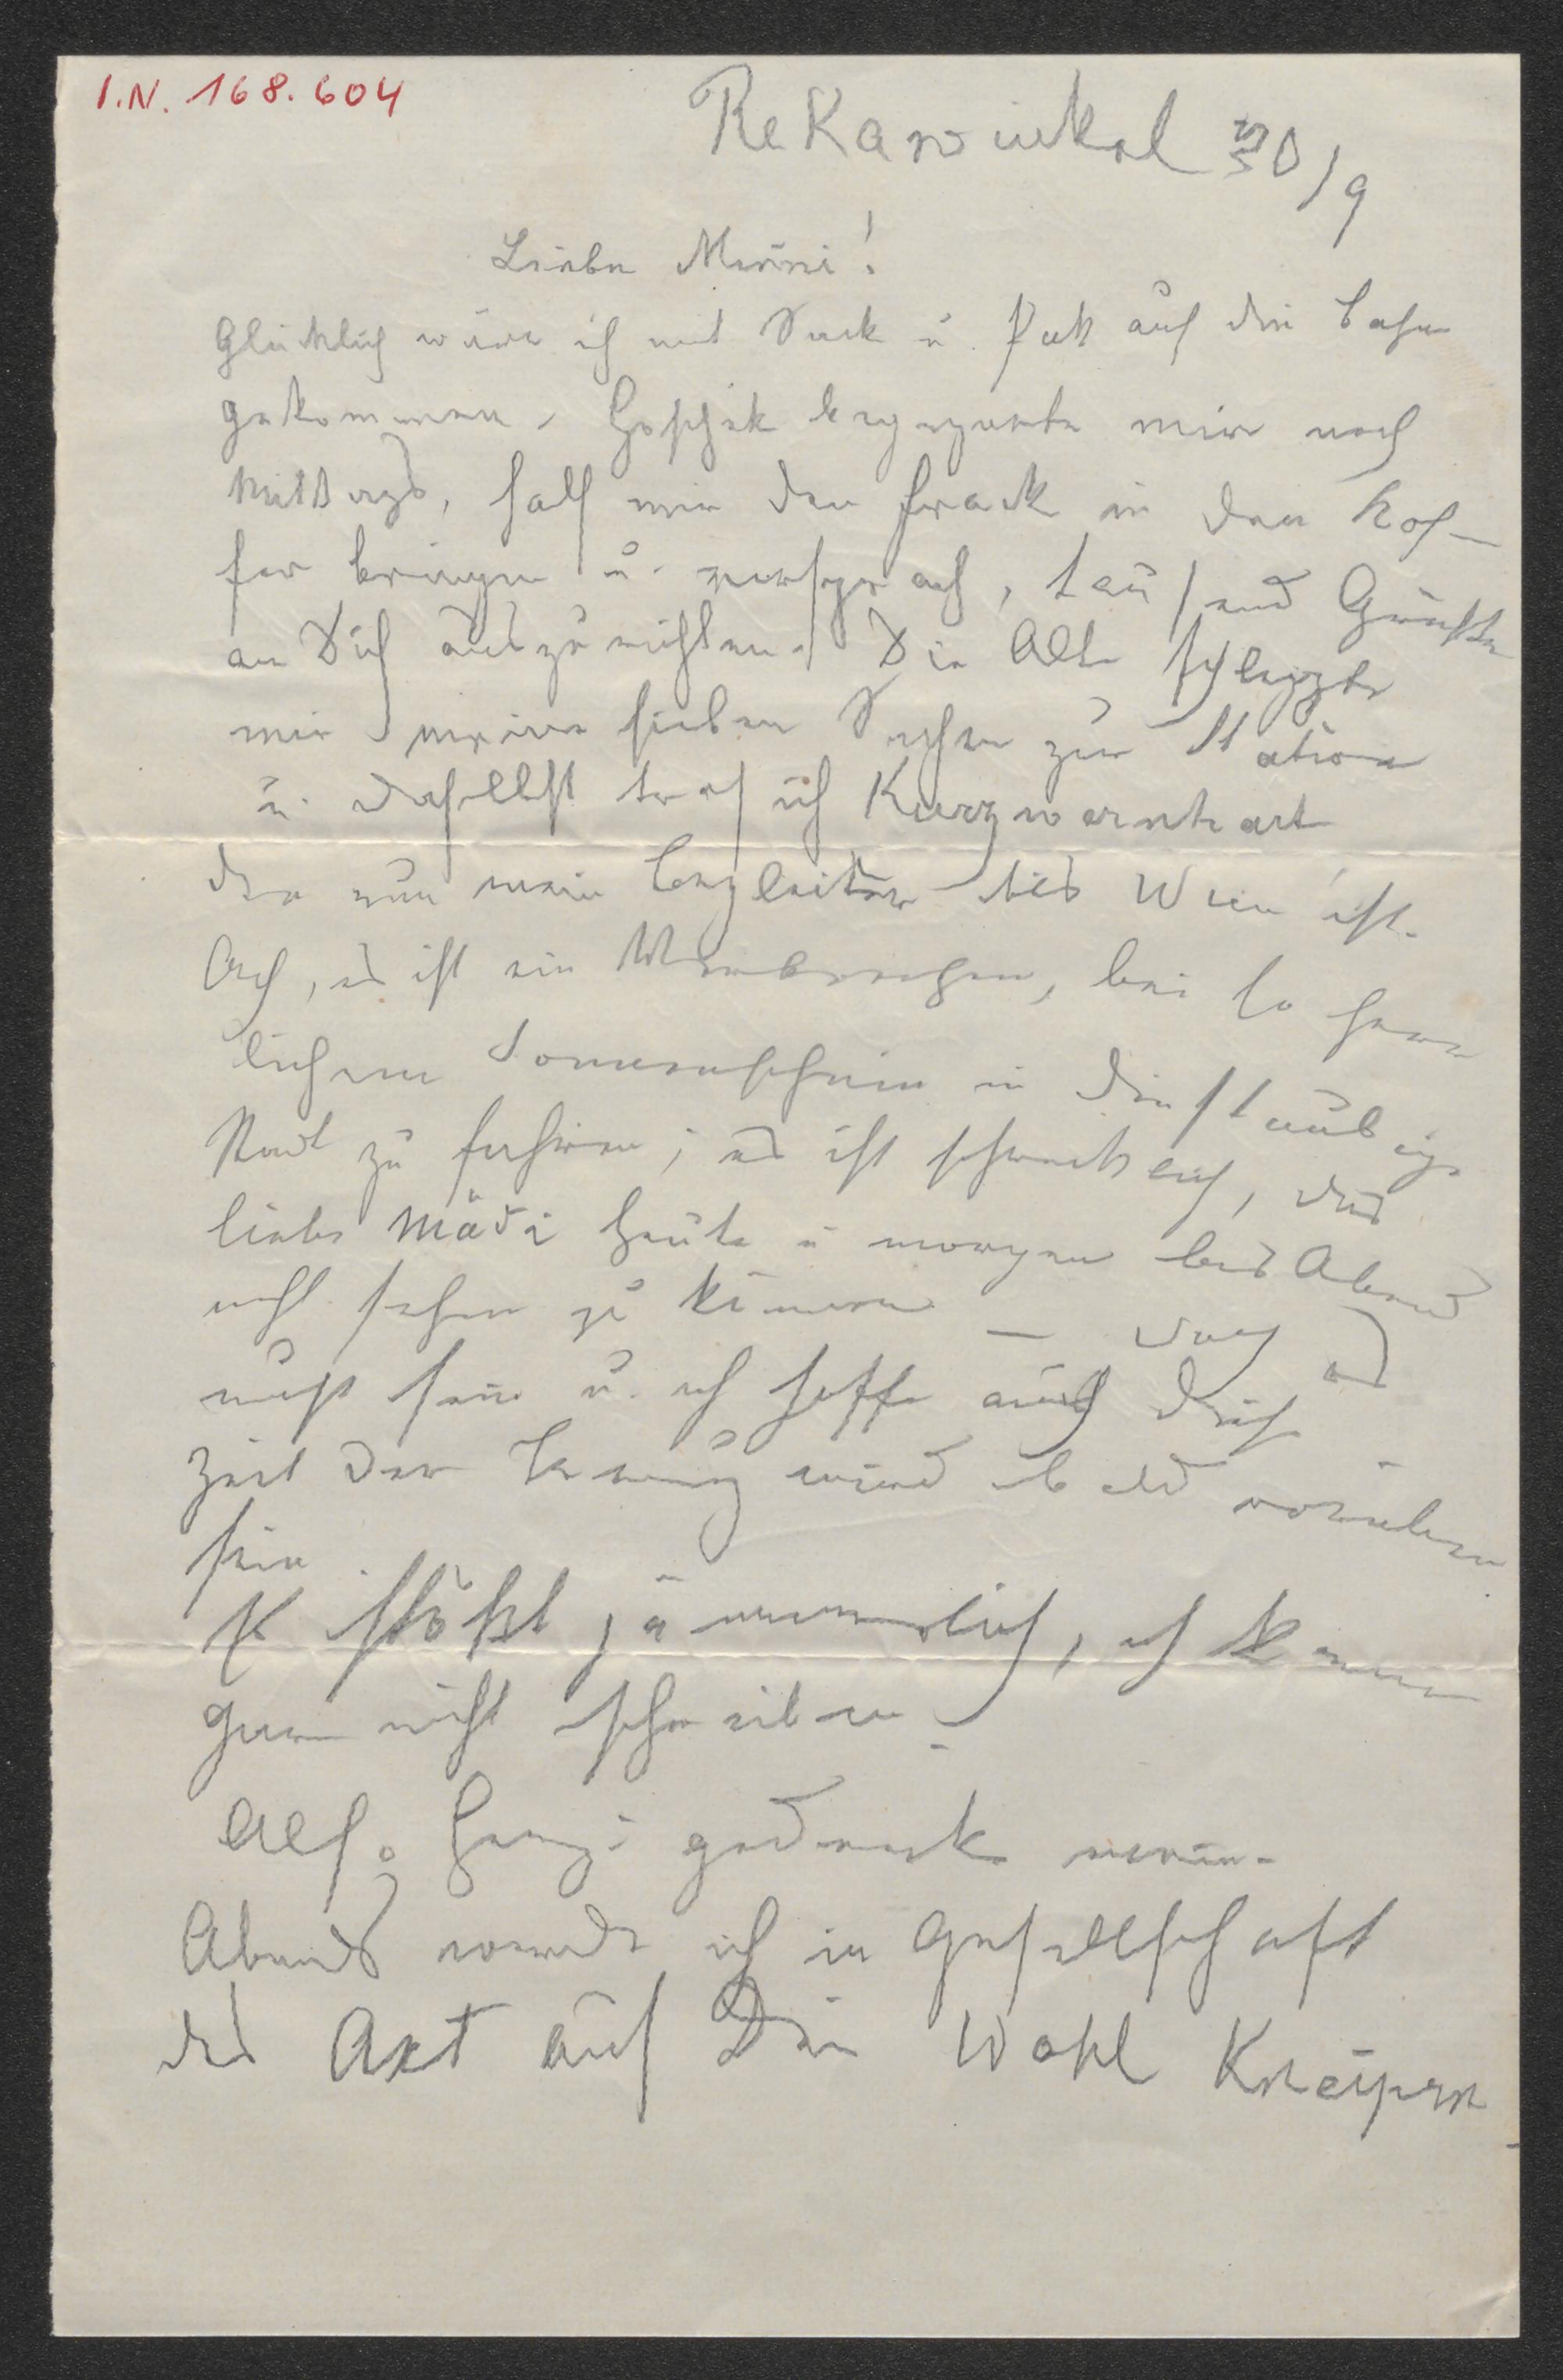 I.N. 168.604
Rekawinkel 30/9
Liebe Minni!
Glücklich wäre ich mit Sack u. Pack auf die Bahn
gekommen. Hoschek begegnete mir noch
Mittags, half mir den Frack in den Kof-
fer bringen u. versprach, tausend Grüße
an Dich auszurichten. Die Alte schleppte
mir meine sieben Sachen zur Station
u. daselbst traf ich Kurzwernhart
der nun mein Begleiter bis Wien ist.
Ach, es ist ein Verbrechen, bei so herr
lichem Sonnenschein in die staubige
Stadt zu fahren; es ist schrecklich, das
liebe Mädi heute u morgen bis Abend
nicht sehen zu können — doch es
muß sein u. ich hoffe auch diese
Zeit der wird bald vorüber
sein.
Es stößt jämmerlich, ich kann
gar nicht schreiben.
Also gedenke mein.
Abends werde ich in Gesellschaft
des Axt auf Dein Wohl Kneipen